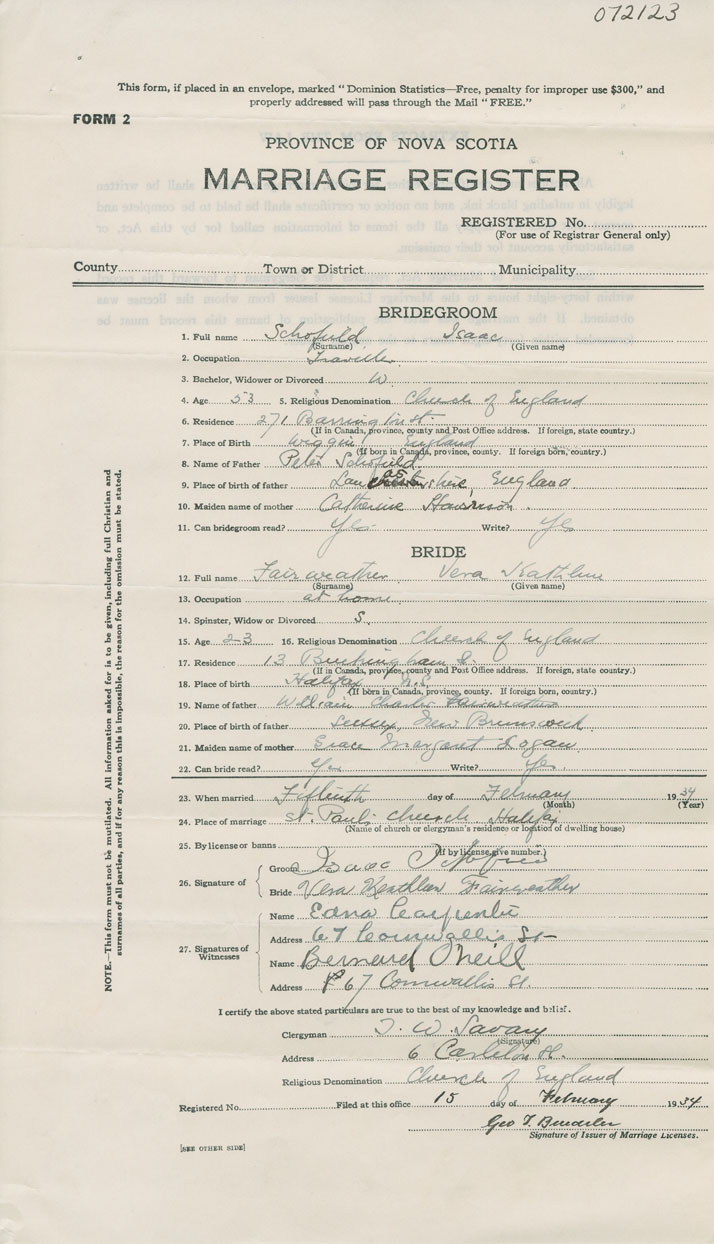 072123
This form, if placed in an envelope, marked "Dominion Statistics—Free, penalty for improper use $300," and
properly addressed will pass through the Mail "FREE."
FORM 2
PROVINCE OF NOVA SCOTIA
MARRIAGE REGISTER
REGISTERED No.
(For use of Registrar General only)
County Town or District Municipality
BRIDEGROOM
1. Full name Schofield Isaac
(Surname) (Given name)
2. Occupation Traveller
3. Bachelor, Widower or Divorced W.
4. Age 53 5. Religious Denomination Church of England
6. Residence 271 Barrington St.
(If in Canada, province, county and Post Office address. If foreign, state country.)
7. Place of Birth Wiggin England
(If born in Canada, province, county. If foreign born, country.)
8. Name of Father Peter Schofield
9. Place of birth of father England
10. Maiden name of mother Catherine Harrison
11. Can bridegroom read? Yes Write? Yes
BRIDE
12. Full name Fairweather Vera Kathleen
(Surname) (Given name)
13. Occupation at home
14. Spinster, Widow or Divorced S.
15. Age 23 16. Religious Denomination Church of England
17. Residence 13 Buckingham S.
(If in Canada, province, county and Post Office address. If foreign, state country.)
18. Place of birth Halifax N.S.
(If born in Canada, province, county. If foreign born, country.)
19. Name of father William Charles Fairweather
20. Place of birth of father Sussex, New Brunswick
21. Maiden name of mother Grace Margaret Logan
22. Can bride read? Yes Write? Yes.
23. When married Fifteenth day of February 1934
(Month) (Year)
24. Place of marriage St. Paul's Church Halifax
(Name of church or clergyman's residence or location of dwelling house)
25. By license or banns
(If by license give number.)
26. Signature of
Groom Isaac Schofield
Bride Vera Kathleen Fairweather
27. Signatures of Witnesses
Name Edna Carpenter
Address 67 Cornwallis St
Name Bernard O'Neill
Address 67 Cornwallis St.
I certify the above stated particulars are true to the best of my knowledge and belief.
Clergyman T. W. Savary
(Signature)
Address 6 Carleton St.
Religious Denomination Church of England
Registered No. Filed at this office 15 day of February 1934
Geo T.
Signature of Issuer of Marriage Licenses.
[SEE OTHER SIDE]
NOTE.—This form must not be mutilated. All information asked for is to be given, including full Christian and
surnames of all parties, and if for any reason this is impossible, the reason for the omission must be stated.